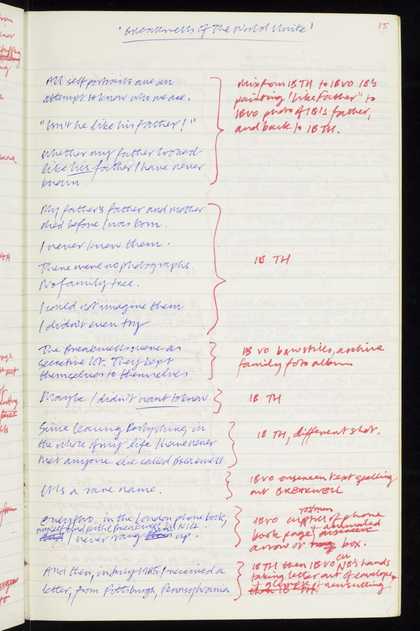 'Breakwells of the World Unite'
15
All self portraits are an
attempt to know who we are.
"Isn't he like his father!"
Whether my father looked
like his father I have never
known
Mix from IB TH to IB VO IB's
painting "Like Father" to
IB VO photo of IB's father,
and back to IB TH.
My father's father and mother
died before I was born.
I never knew them.
There were no photographs.
No family tree.
I could not imagine them
I didn't even try
IB TH
The Breakwells were a
secretive lot. They kept
themselves to themselves
IB VO b&w stills, archive
family foto album
Maybe I didn't want to know
IB TH
Since leaving Derbyshire, in
the whole of my life I have never
met anyone else called Breakwell
IB TH, different shot.
It's a rare name.
IB VO onscreen text spelling
out BREAKWELL
in the London phone book,
I never rang up.
IB VO of phone
book page, animated
arrow or box.
And then, in July 1985 I received a
letter, from Pittsburgh, Pennsylvania
IB TH then IB VO CU IB's hands
taking letter out of envelope